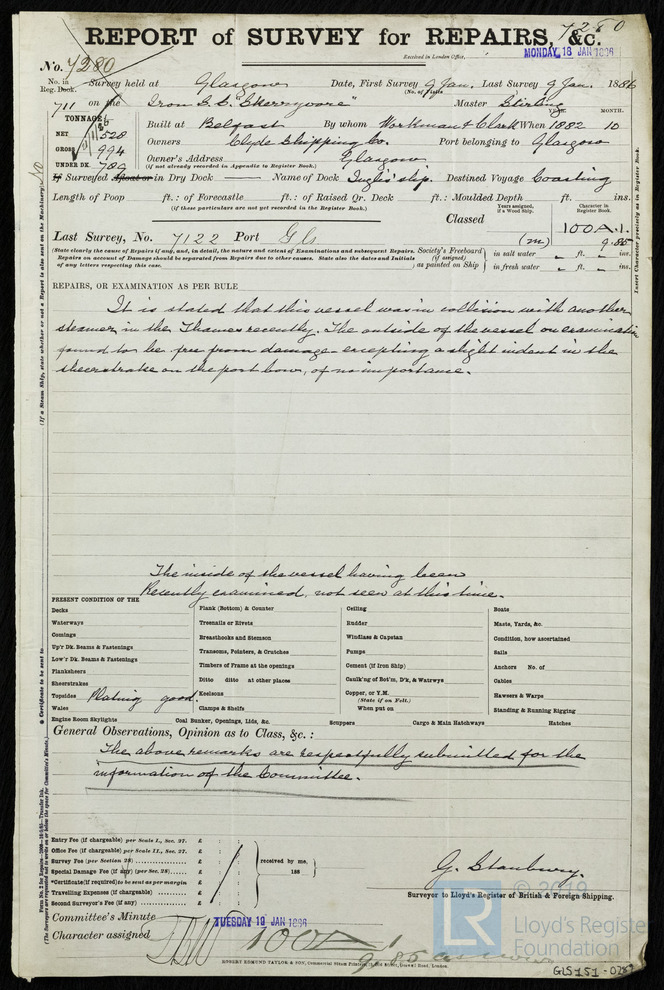 7280
REPORT of SURVEY for REPAIRS, &c.
Received in London Office, MONDAY 18 JAN 1886
No. 7280
No. in Reg. Book. Survey held at Glasgow Date, First Survey 9 Jan. Last Survey 9 Jan. 1886
(No. of Visits
711 on the Iron S.S. "Skerryvore" Master Stirling
TONNAGE YEAR. MONTH.
NET 528 Built at Belfast By whom Workman & Clark When 1882 10
GROSS 994 Owners Clyde Shipping Co. Port belonging to Glasgow
UNDER DK. 789 Owner's Address Glasgow
(if not already recorded in Appendix to Register Book.)
If Surveyed Afloat or in Dry Dock Name of Dock Inglis' slip. Destined Voyage Coasting
Length of Poop ft.: of Forecastle ft.: of Raised Qr. Deck ft.: Moulded Depth ft. ins.
(if these particulars are not yet recorded in the Register Book.)
Years assigned, if a Wood Ship. Character in Register Book.
Classed 100A.1.
Last Survey, No. 7122 Port Gls (m) 9.85
(State clearly the cause of Repairs if any, and, in detail, the nature and extent of Examinations and subsequent Repairs.
Repairs on account of Damage should be separated from Repairs due to other causes. State also the dates and Initials
of any letters respecting this case.
Society's Freeboard (if assigned) as painted on Ship
in salt water " ft. " ins.
in fresh water " ft. " ins.
REPAIRS, OR EXAMINATION AS PER RULE
It is stated that this vessel was in collision with another
steamer in the Thames recently. The outside of the vessel on examination
found to be free from damage excepting a slight indent in the
sheerstrake on the port bow, of no importance.
The inside of the vessel having been
Recently examined, not seen at this time.
PRESENT CONDITION OF THE
Decks
Waterways
Comings
Up'r Dk. Beams & Fastenings
Low'r Dk. Beams & Fastenings
Planksheers
Sheerstrakes
Topsides Plating good.
Wales
Engine Room Skylights
Plank (Bottom) & Counter
Treenails or Rivets
Breasthooks and Stemson
Transoms, Pointers, & Crutches
Timbers of Frame at the openings
Ditto ditto at other places
Keelsons
Clamps & Shelfs
Coal Bunker, Openings, Lids, &c.
Ceiling
Rudder
Windlass & Capstan
Pumps
Cement (if Iron Ship)
Caulk'ng of Bot'm, D'k, & Watrwys
Copper, or Y.M.
(State if on Felt.)
When put on
Scuppers
Cargo & Main Hatchways
Boats
Masts, Yards, &c.
Condition, how ascertained
Sails
Anchors No. of
Cables
Hawsers & Warps
Standing & Running Rigging
Hatches
General Observations, Opinion as to Class, &c. :
The above remarks are respectfully submitted for the
information of the Committee.
Entry Fee (if chargeable) per Scale I., Sec. 27. £ : :
Office Fee (if chargeable) per Scale II., Sec. 27. £ : :
Survey Fee (per Section 28) £ : :
Special Damage Fee (if any) (per Sec. 28) £ : :
*Certificate (if required) to be sent as per margin
Travelling Expenses (if chargeable) £ : :
Second Surveyor's Fee (if any) £ : :
received by me,
188
G. Stanbury.
Surveyor to Lloyd's Register of British & Foreign Shipping.
Committee's Minute TUESDAY 19 JAN 1886
Character assigned 100A1
9.85
ROBERT EDMUND TAYLOR & SON, Commercial Steam Printers
© 2019
LR
Lloyd's Register
Foundation
GLS151-0287
Insert Character precisely as in Register Book.
(If a Steam Ship, state whether or not a Report is also sent on the Machinery) No
* Certificate to be sent to
(The Surveyors are requested not to write on or below the space for Committee's Minute.)